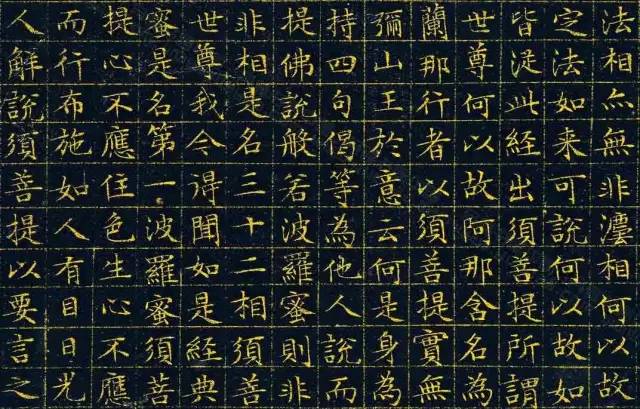 法相亦無非灋相何以故
定法如来可說何以故如
皆從此經出須善提所謂
世尊何以故阿那含名為
蘭那行者以須善提實無
彌山王於意云何是身為
持四句偈等為他人說而
提佛說般若波羅蜜則非
非相是名三十二相須善
世尊我今得聞如是經典
蜜是名第一波羅蜜須菩
提心不應住色生心不應
而行布施如人有目日光
人解說須善提以要言之